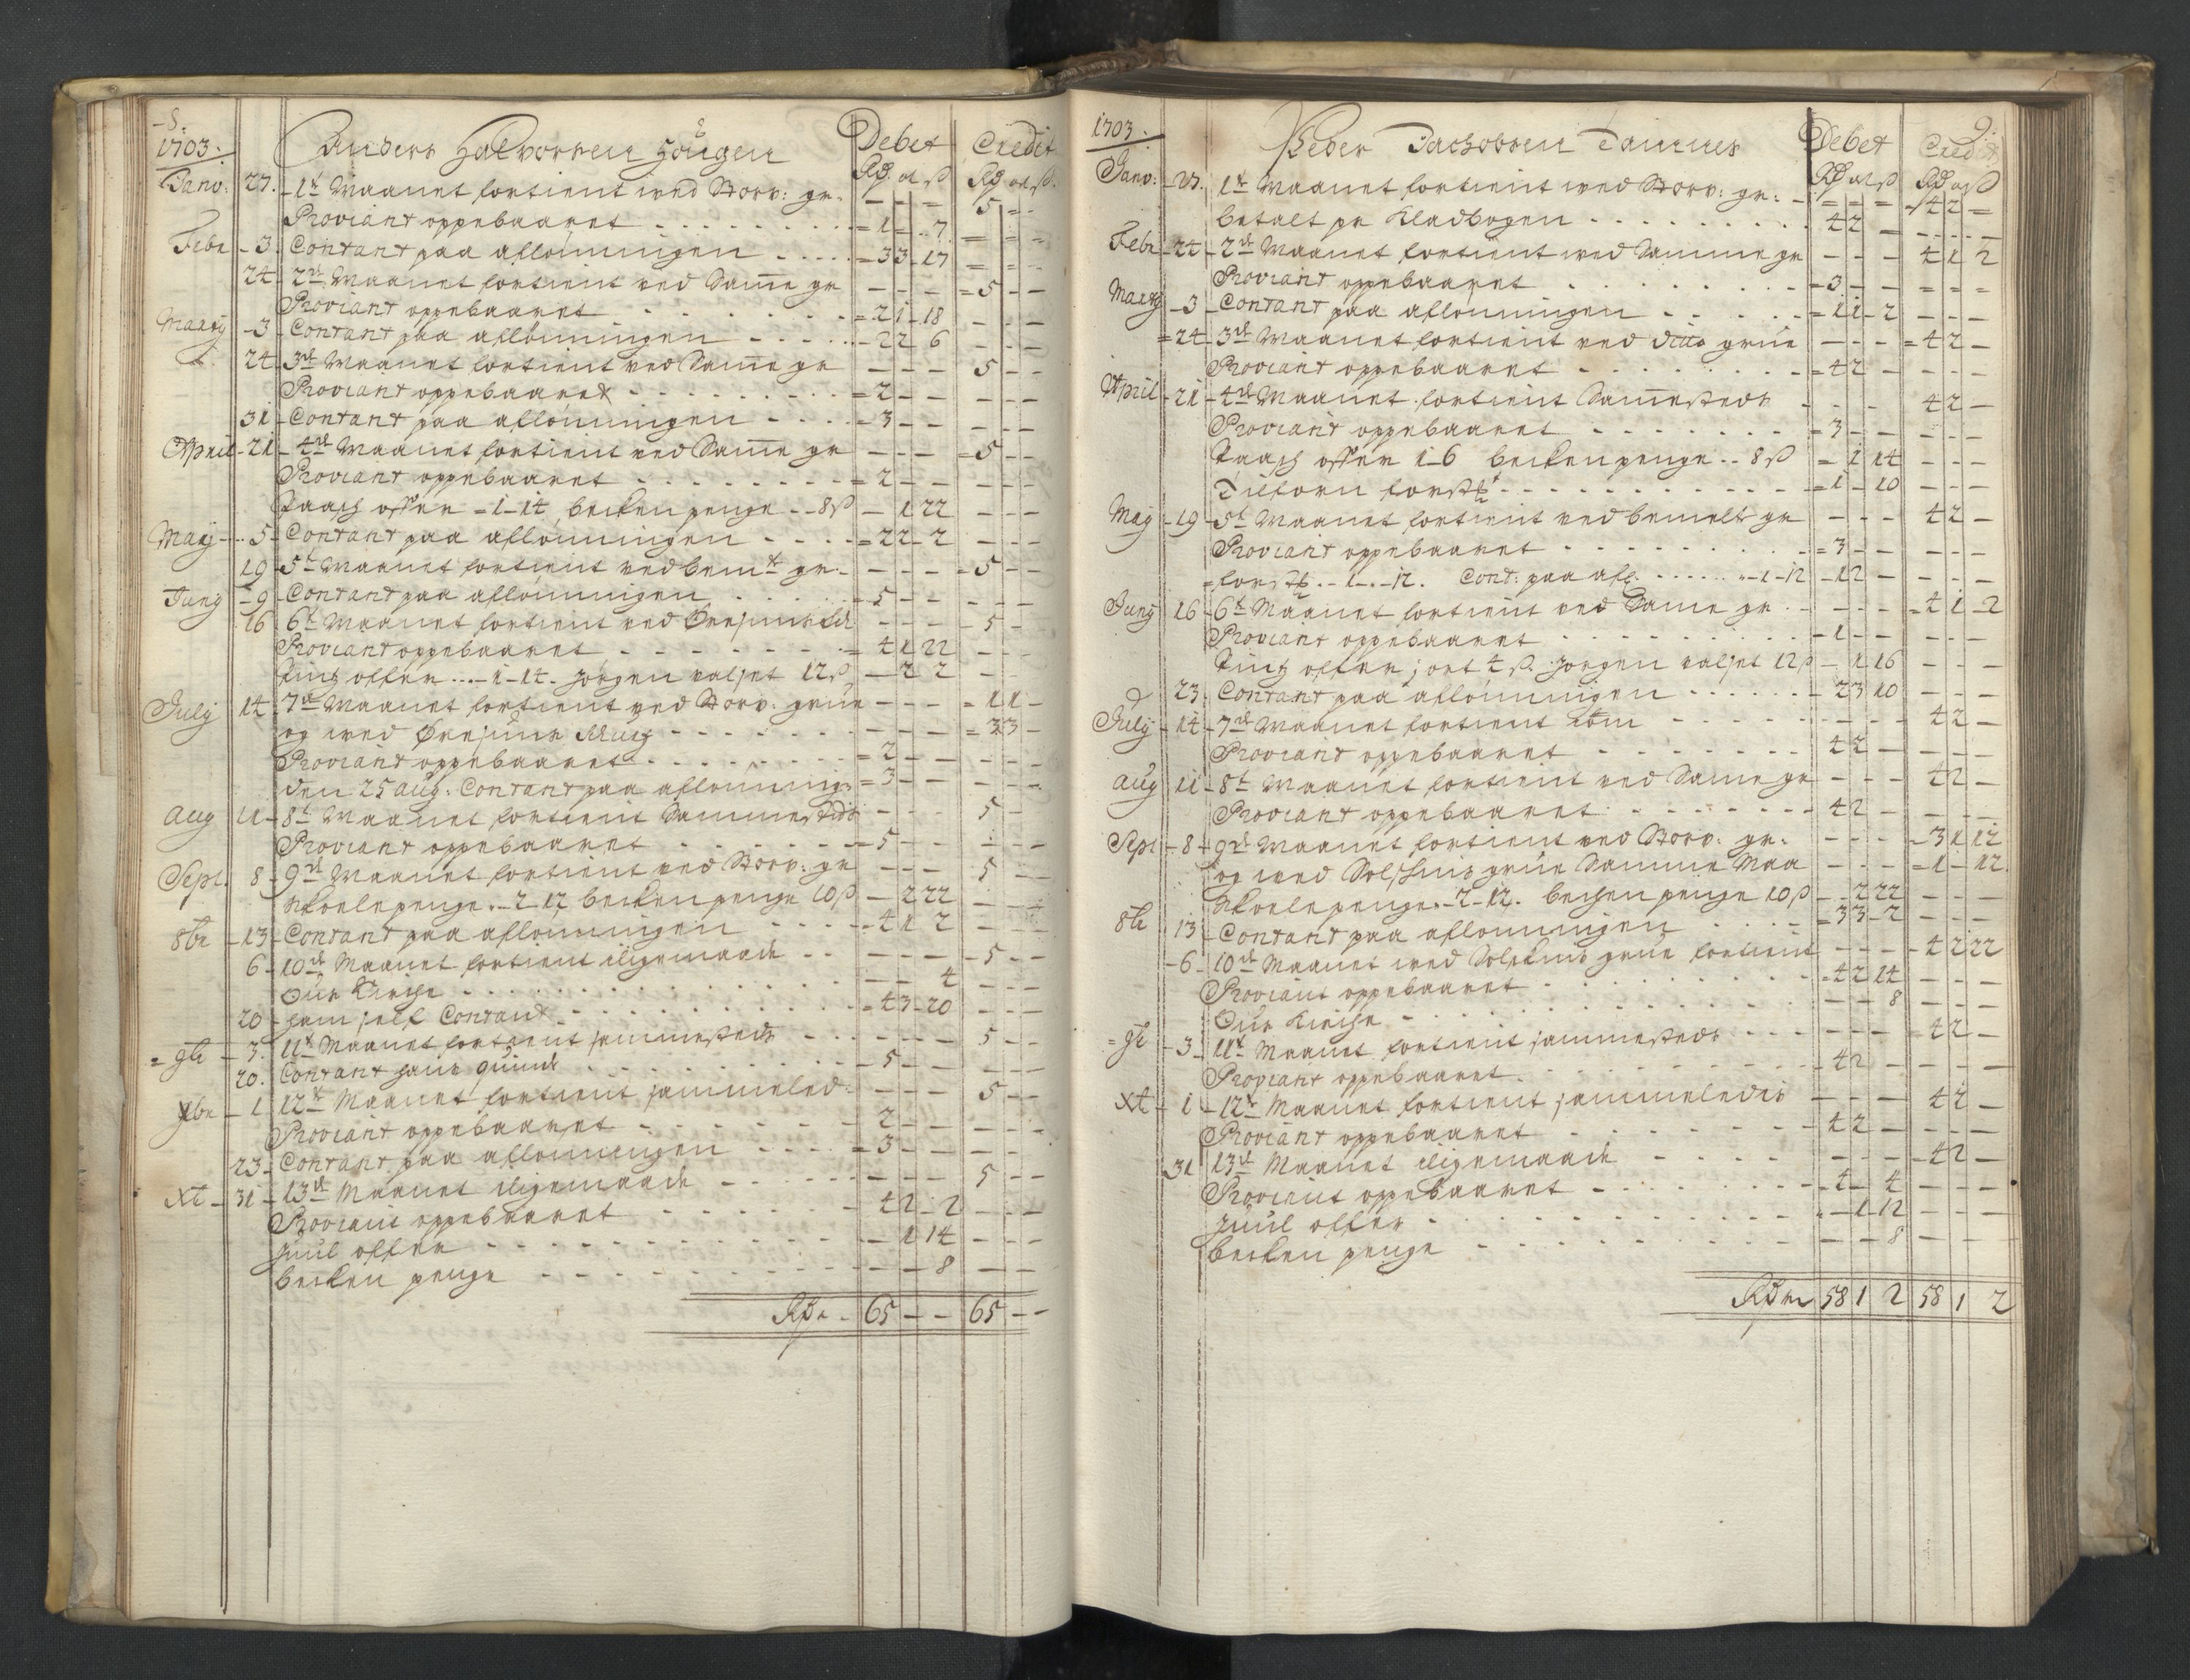 8.
1703. Anders Halvorsen Haugen Debet Credit
Rd ort ß Rd ort ß
Janv: 27. 1t Maanet fortient wed Storv: gr. - - - 5 - -
Proviant oppebaaret - 1 - 7 - - -
Febr 3. Contant paa aflönningen - 3 3 17 - - -
24 2d Maanet fortient ved Same gr - - - 5 - -
Proviant oppebaaret - 2 1 18 - - -
Martj 3 Contant paa aflönningen - 2 2 6 - - -
24 3d Maanet fortient ved Same gr - - - 5 - -
Proviant oppebaaret - 2 - - - - -
31 Contant paa aflönningen - 3 - - - - -
April 21 4d Maanet fortient ved Same gr - - - 5 - -
Proviant oppebaaret - 2 - - - - -
Paasch offer - 1 - 14, becken penge - 8 ß - 1 22 - - -
Maij 5 Contant paa aflönningen - 2 2 2 - - -
19 5t Maanet fortient ved bemt gr. - - - 5 - -
Junij 9 Contant paa aflönningen - 5 - - - - -
16 6t Maanet fortient ved - - - 5 -
Proviant oppebaaret - 4 1 22 - - -
Ting offer - 1 - 14. Jörgen valset 12 ß - 2 2 -
July 14 7de Maanet fortient ved Storv: grue - - - 1 1 -
og wed - - - 3 3 -
Proviant oppebaaret - 2 - - - - -
den 25 aug: Contant paa aflönning - 3 - - - - -
Aug 11 8t Maanet fortient Sammestedz - - - 5 -
Proviant oppebaaret - 5 - - - - -
Sept. 8 9d Maanet fortient ved Storv: gr - - - 5 - -
Skole penge - 2 12 becken penge 10 ß - 2 22 - - -
8br 13 Contant paa aflönningen - 4 1 2 - - -
6 10d Maanet fortient iligemaade - - - 5 - -
Our Kirche - - 4 - - -
20 ham self Contant - 4 3 20 - - -
9br 3. 11t Maanet fortient sammestedz - - - 5 - -
20. Contant hans quinde - 5 - - - - -
Xbr 1 12t Maanet fortient sammeled: - - - 5 - -
Proviant oppebaaret 2 - - - - -
23 Contant paa aflönningen - 3 - - - - -
Xt 31 13d Maanet iligemaade - - - 5 - -
Proviant oppebaaret 4 2 2 - - -
Juul offer - 1 14 - - -
becken penge - - 8 - -
Rdr. 65 - - 65 - -
9.
1703. Peder Jachobsen Tamnes Debet Credit
Rd ort ß Rd ort ß
Janv: 27. 1t Maanet fortient wed Storv: gr: - - - 4 2 -
betalt pr Kladbogen 4 2 - - - -
Febr 24 2d Maanet fortient wed Samme gr - - - 4 1 2
Proviant oppebaaret - 3 - - - - -
Martj 3 Contant paa aflönningen - 1 1 2 - - -
24 3d Maanet fortient ved dito grue - - - 4 2 -
Proviant oppebaaret - 4 2 - - - -
April 21 4d Maanet fortient Samestedz - - - 4 2 -
Proviant oppebaaret - 3 - - - - -
Paasch offer 1 6 becken penge - 8 ß - 1 14 - - -
Tilforn - 1 - 10 - - -
Maij 19 5t Maanet fortient ved bemelt gr - - - 4 2 -
Proviant oppebaaret - 3 - - - - -
- 1 - 12. Cont: paa afl. - 1 - 12 - 1 2 - - - -
Junij 16 6t Maanet fortient ved Same gr - - - 4 1 2
Proviant oppebaaret - 1 - - - - -
Ting offer 4 ß. Jörgen valset 12 ß - 1 16 - - -
23. Contant paa aflönningen - 2 3 10 - - -
July 14 7d Maanet fortient - - - 4 2 -
Proviant oppebaaret 4 2 - - - -
Aug 11 8t Maanet fortient ved Same gr - - - 4 2 -
Proviant oppebaaret - 4 2 - - - -
Sept 8 9d Maanet fortient ved Storv: gr. - - - 3 1 12
og wed grue Samme Maa - - - 1 - 12.
Skole penge - 2 - 12. becken penge 10 ß - 2 22 - - -
8br 13 Contant paa aflönningen - 3 3 2 - - -
6 10d Maanet wed grue fortient - - - 4 2 22
Proviant oppebaaret - 4 2 14 - - -
Our Kirche - - 8 - - -
9br 3 11t Maanet fortient sammestedz - - - 4 2 -
Proviant oppebaaret. - 4 2 - - - -
Xt 1 12t Maanet fortient sammeledis - - - 4 2 -
Proviant oppebaaret - 4 2 - - - -
31 13d Maanet iligemaade - - - 4 2 -
Proviant oppebaaret - 4 - 4 - - -
Juul offer - 1 12 - - -
becken penge - - 8 - - -
Rdr 58 1 2 58 1 2